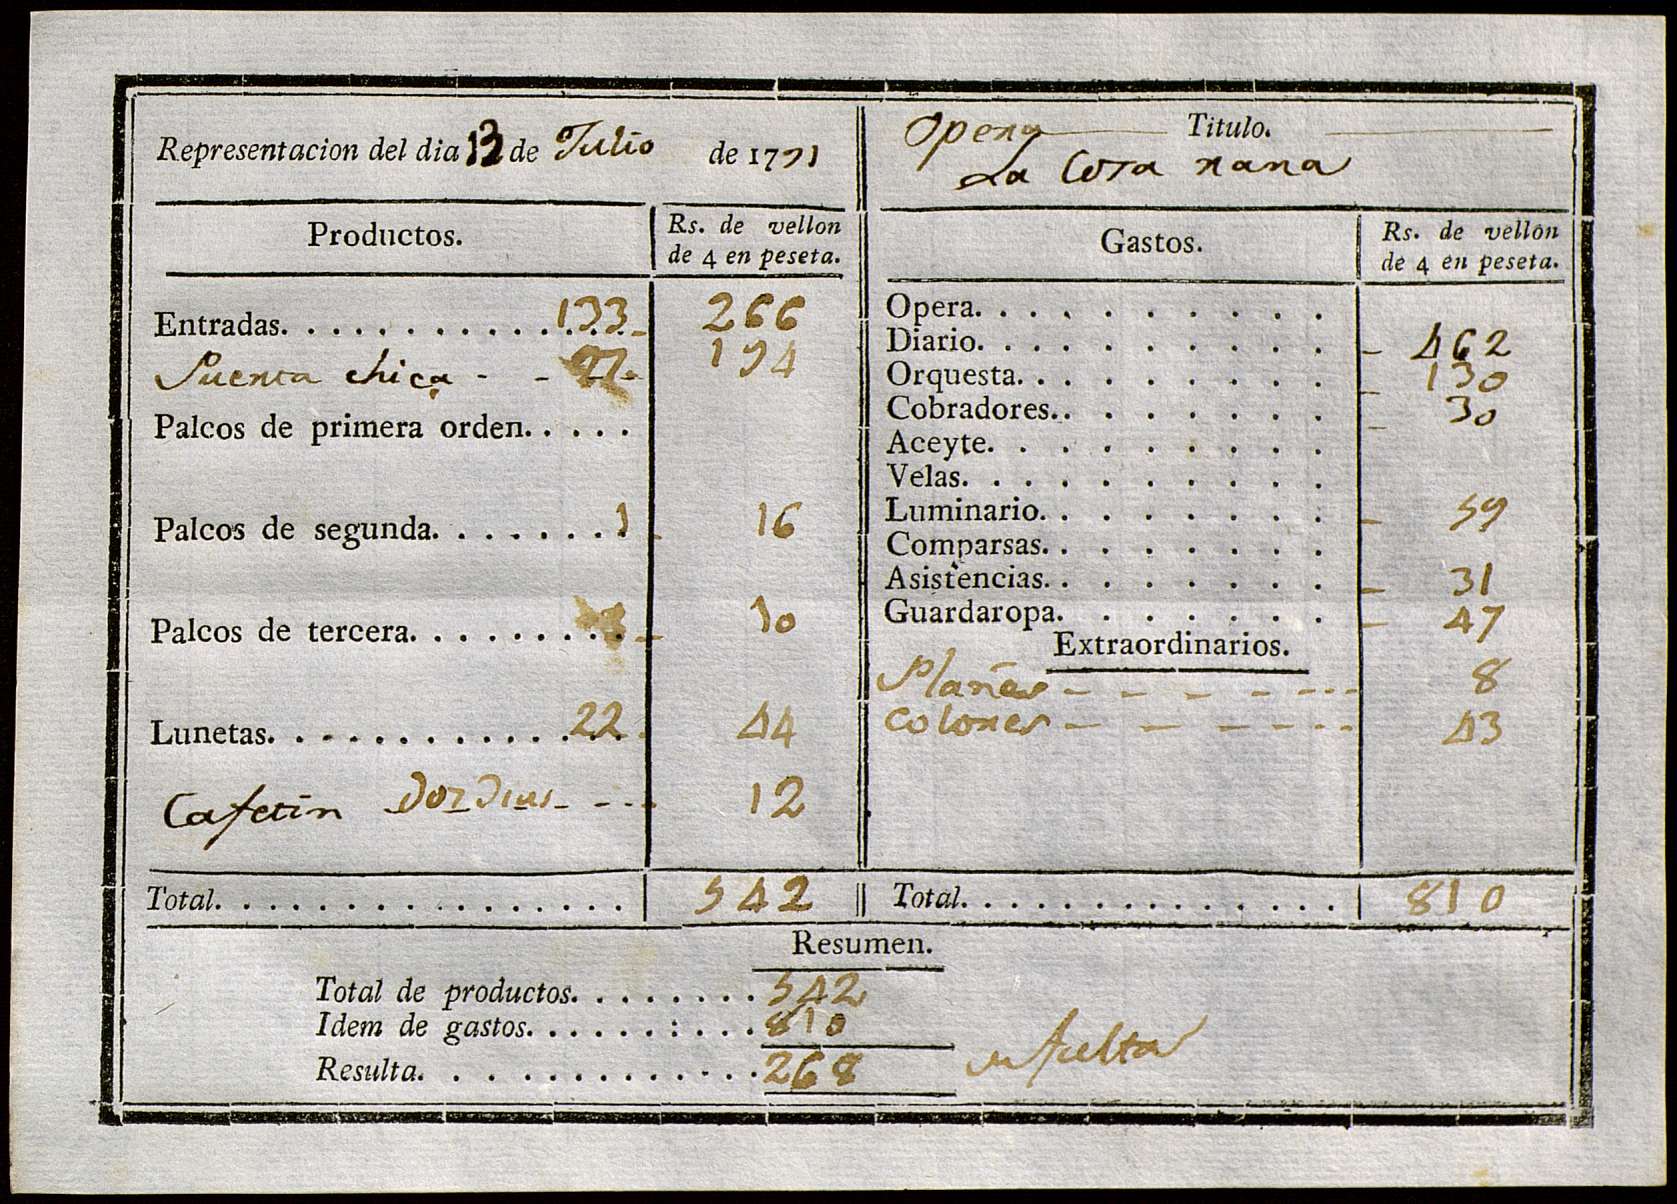 Representacion del dia 13 de Julio de 1791
Opera Titulo.
La Cosa rara
Productos. Rs. de vellon
de 4 en peseta.
Entradas. . . . . . . . . . . . . 133 266
Puerta chica - - 97 194
Palcos de primera orden. . . . .
Palcos de segunda. . . . . . . 1 16
Palcos de tercera. . . . . . . . . 10
Lunetas. . . . . . . . . . . . . 22 44
Cafetin dos dias - - - - 12
Total. . . . . . . . . . . . . . . . 542
Gastos. Rs. de vellon
de 4 en peseta.
Opera. . . . . . . . . .
Diario. . . . . . . . . . 462
Orquesta. . . . . . . . . 130
Cobradores. . . . . . . . 30
Aceyte. . . . . . . . . .
Velas. . . . . . . . . . .
Luminario. . . . . . . . 59
Comparsas. . . . . . . .
Asistencias. . . . . . . . 31
Guardaropa. . . . . . . . 47
Extraordinarios.
- - - - - - - 8
Colores - - - - - - - 43
Total. . . . . . . . . . . . . . . 810
Resumen.
Total de productos. . . . . . . . 542
Idem de gastos. . . . . . : . . . 810
Resulta. . . . . . . . . . . . . 268 en falta